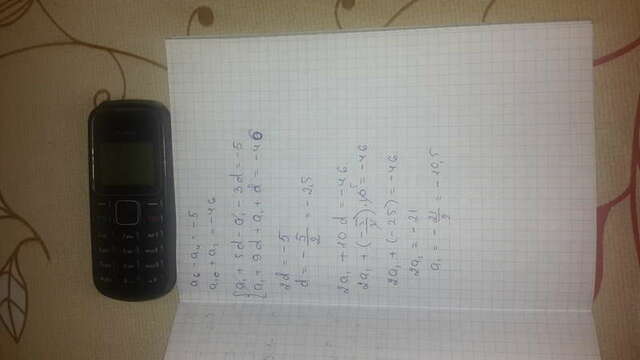 a₆ - a₄ = -5
a₁₀ + a₂ = -46
{ a₁ + 5d - a₁ - 3d = -5
{ a₁ + 9d + a₁ + d = -46
2d = -5
d = -5/2 = -2,5
2a₁ + 10d = -46
2a₁ + (-5/2) · 10 = -46
2a₁ + (-25) = -46
2a₁ = -21
a₁ = -21/2 = -10,5